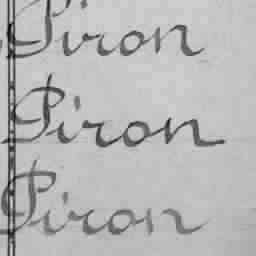 Piron
Piron
Piron